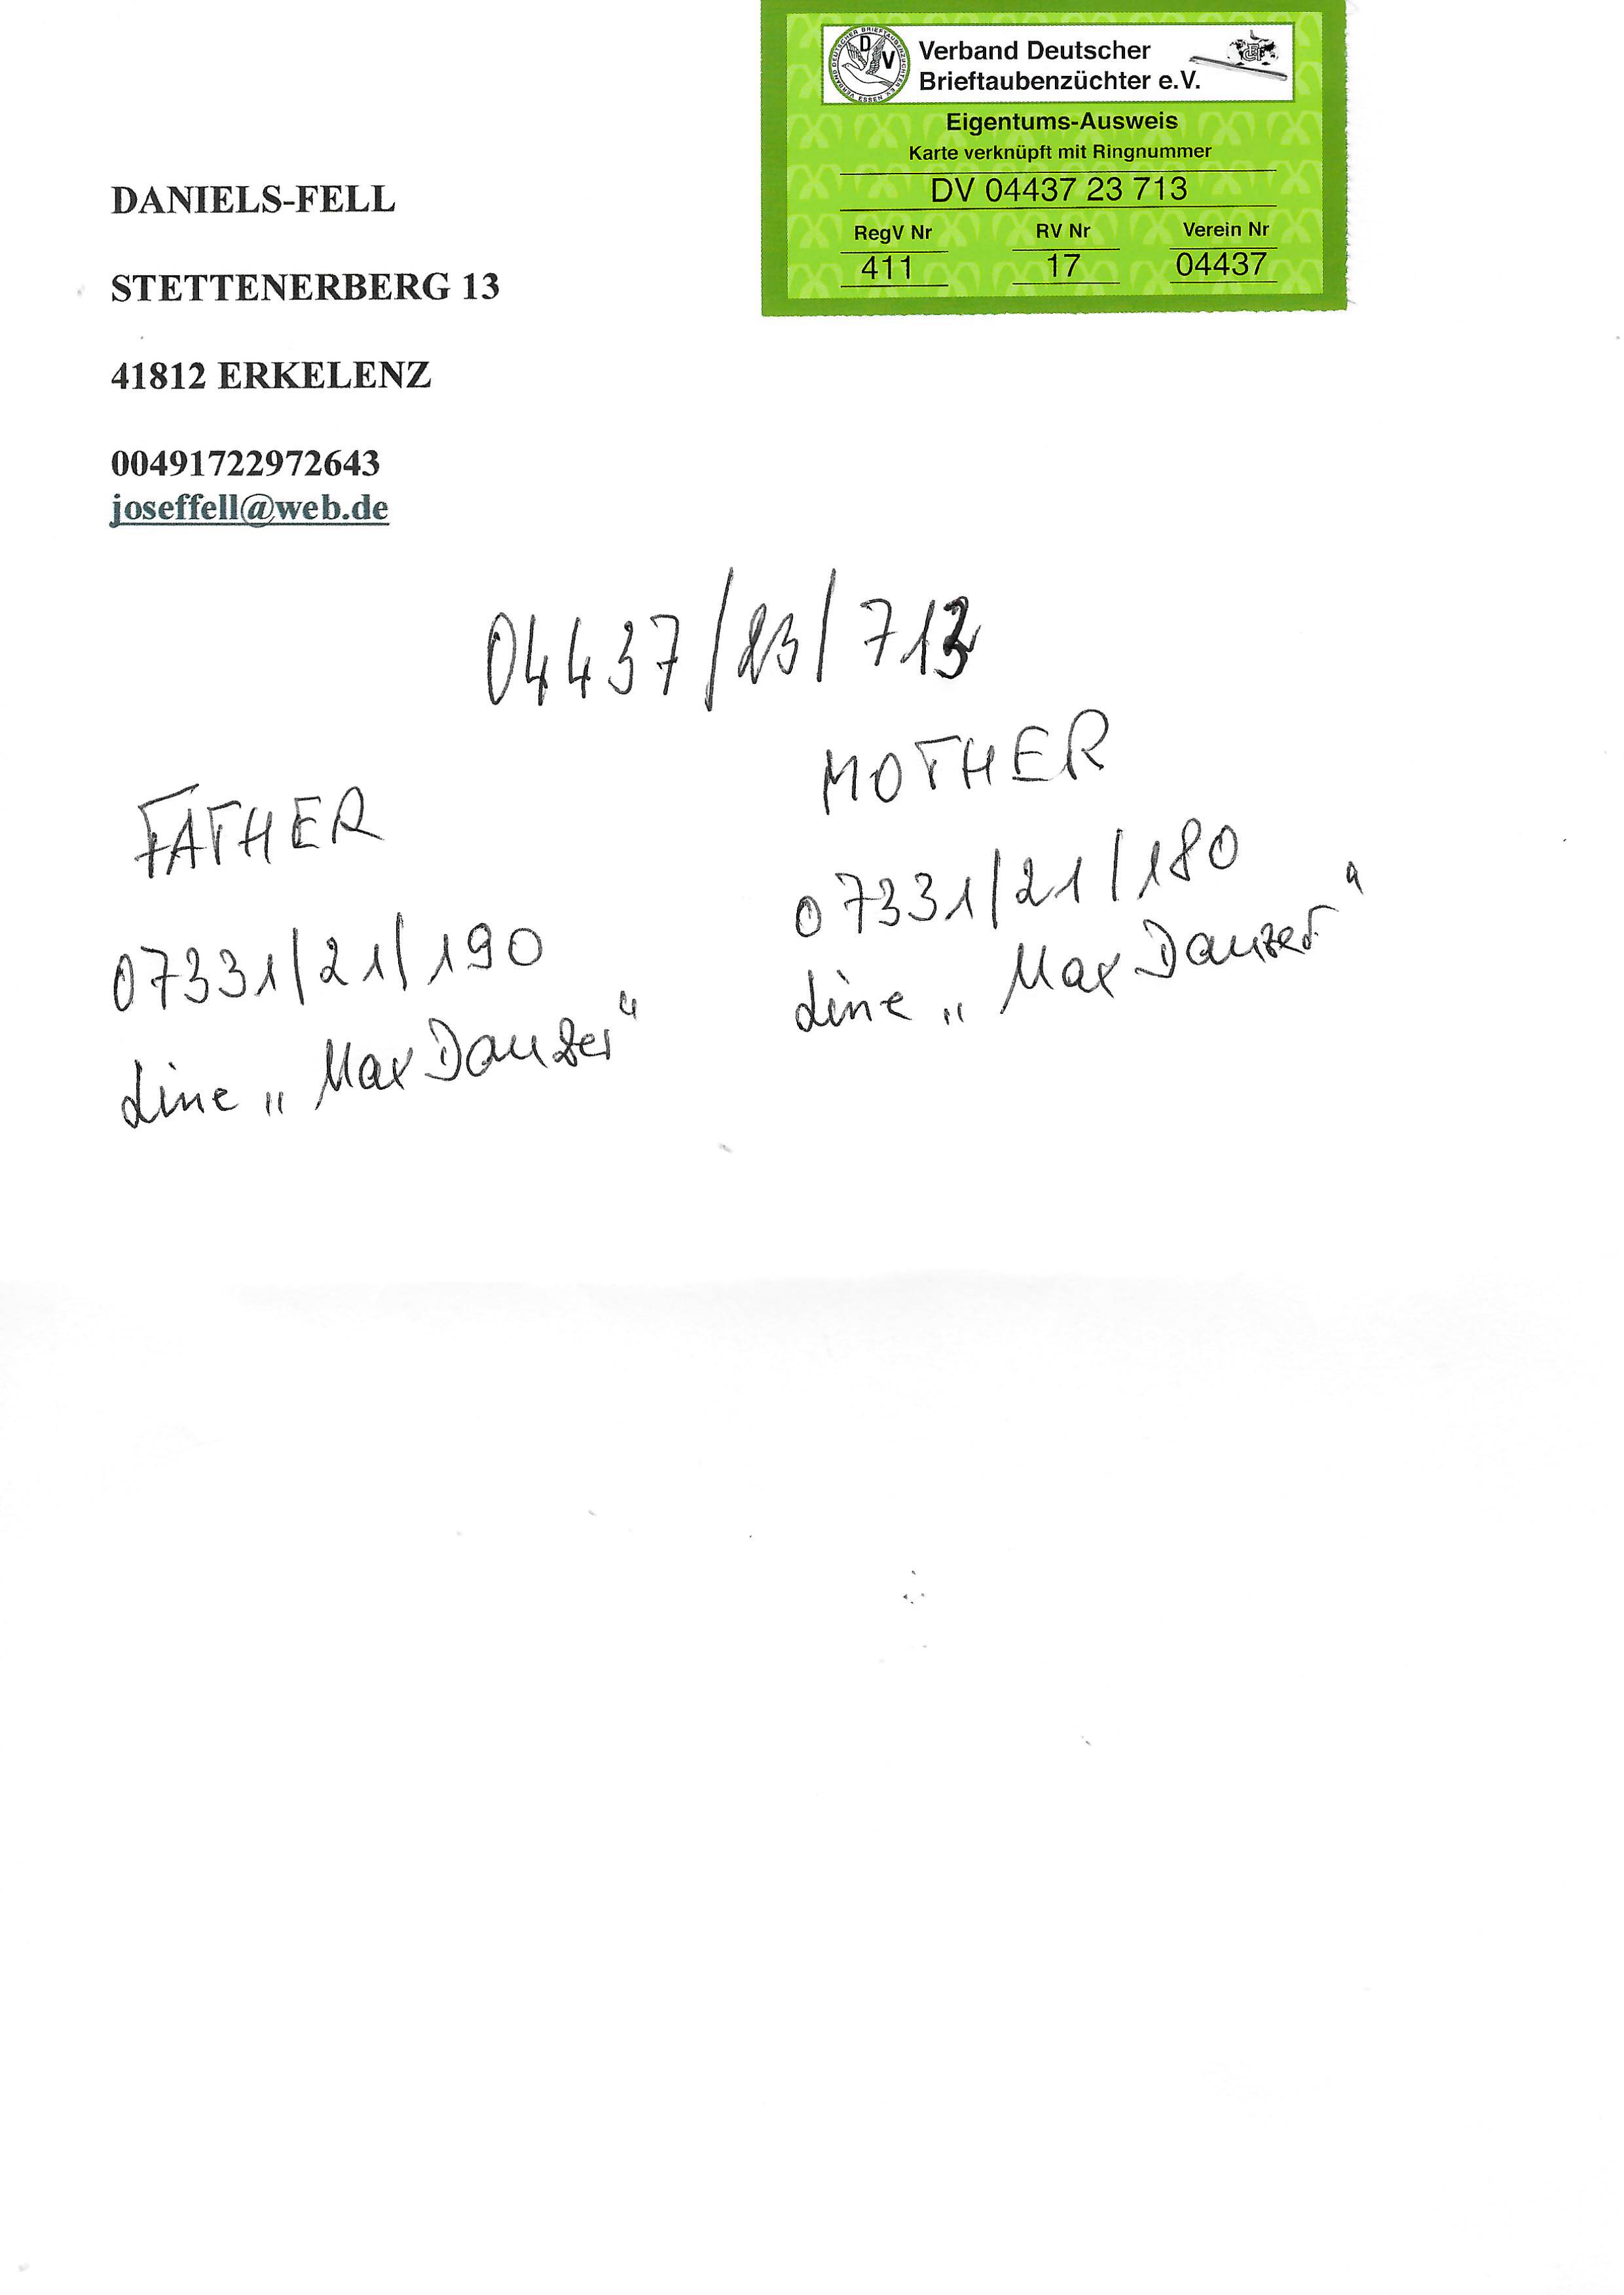 Verband Deutscher
Brieftaubenzüchter e.V.
Eigentums-Ausweis
Karte verknüpft mit Ringnummer
DV 04437 23 713
RegV Nr RV Nr Verein Nr
411 17 04437
DANIELS-FELL
STETTENERBERG 13
41812 ERKELENZ
00491722972643
joseffell@web.de
04437/23/713
FATHER
07331/21/190
Line „Max Danzer“
MOTHER
07331/21/180
Line „Max Danzer“